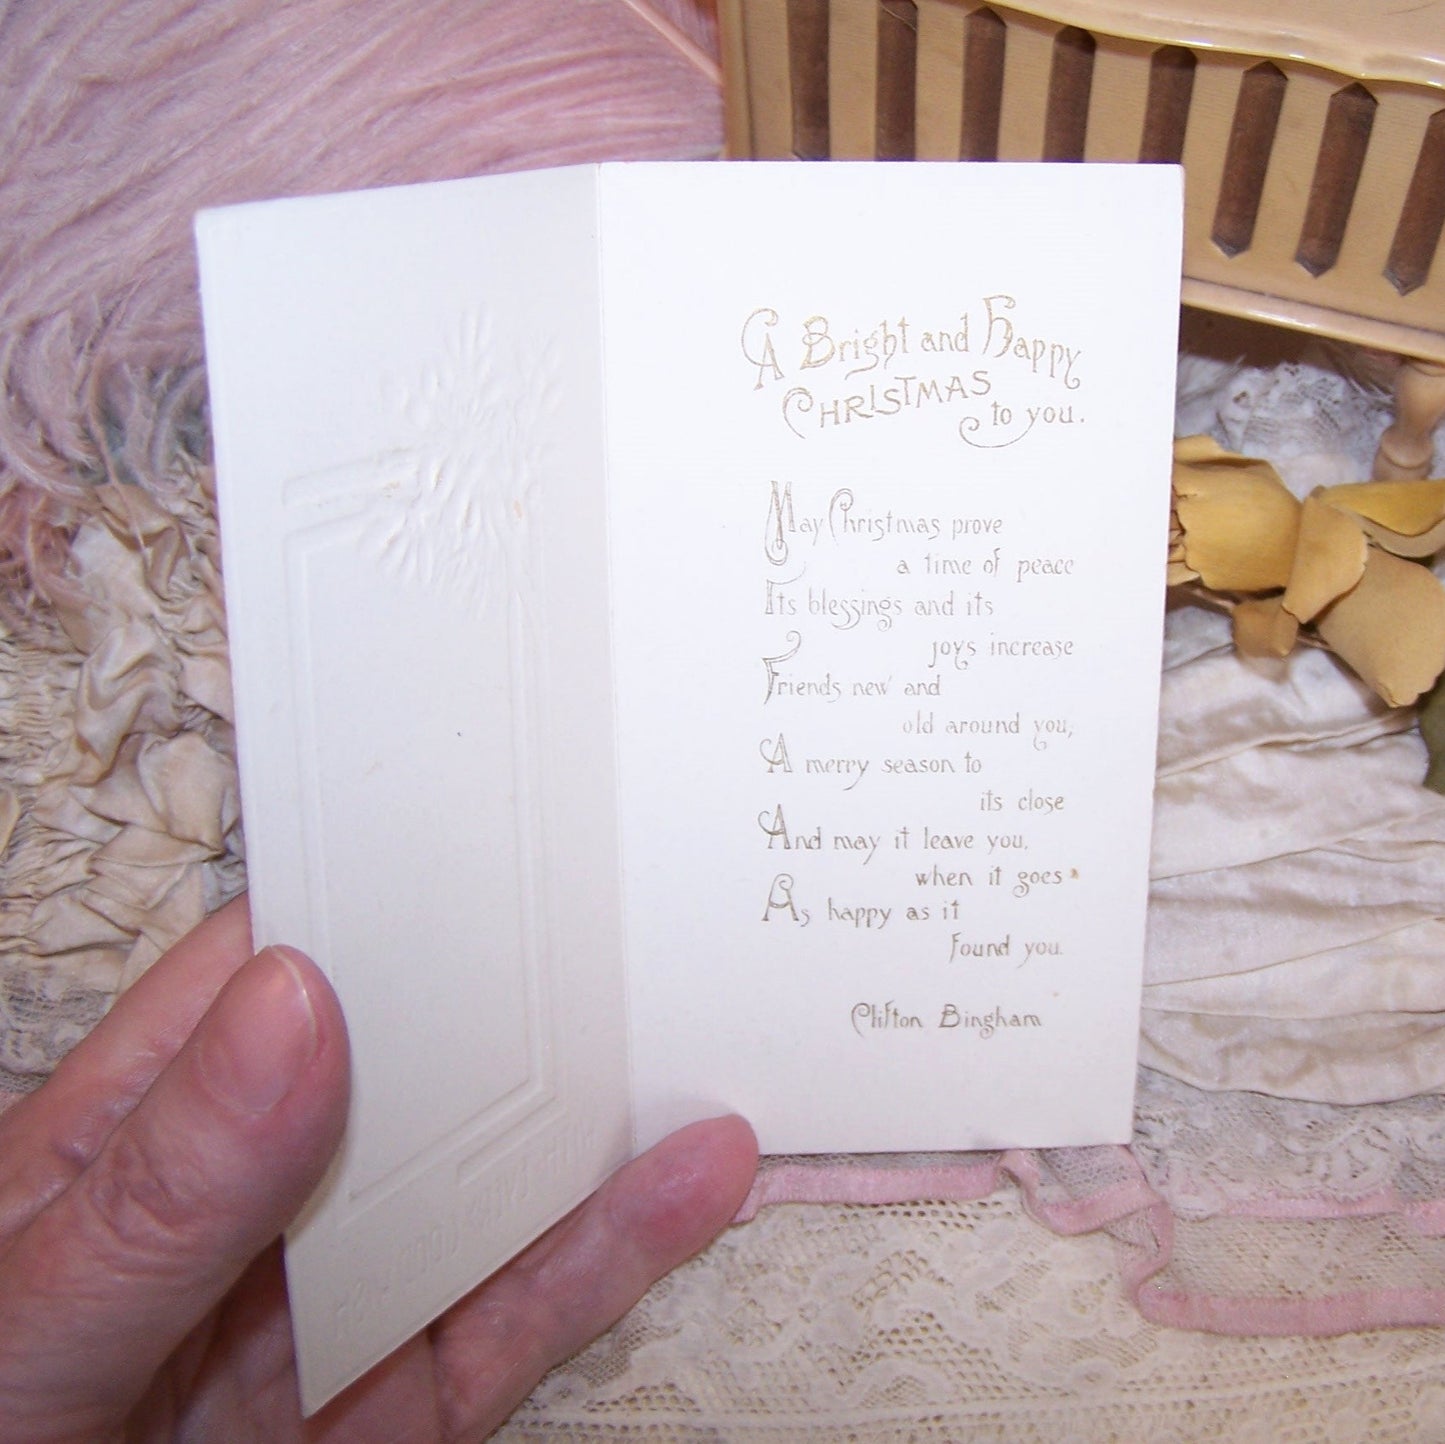 A Bright and Happy
CHRISTMAS
to you.
May Christmas prove
a time of peace
Its blessings and its
joys increase
Friends new and
old around you,
A merry season to
its close
And may it leave you,
when it goes
As happy as it
found you.
Clifton Bingham